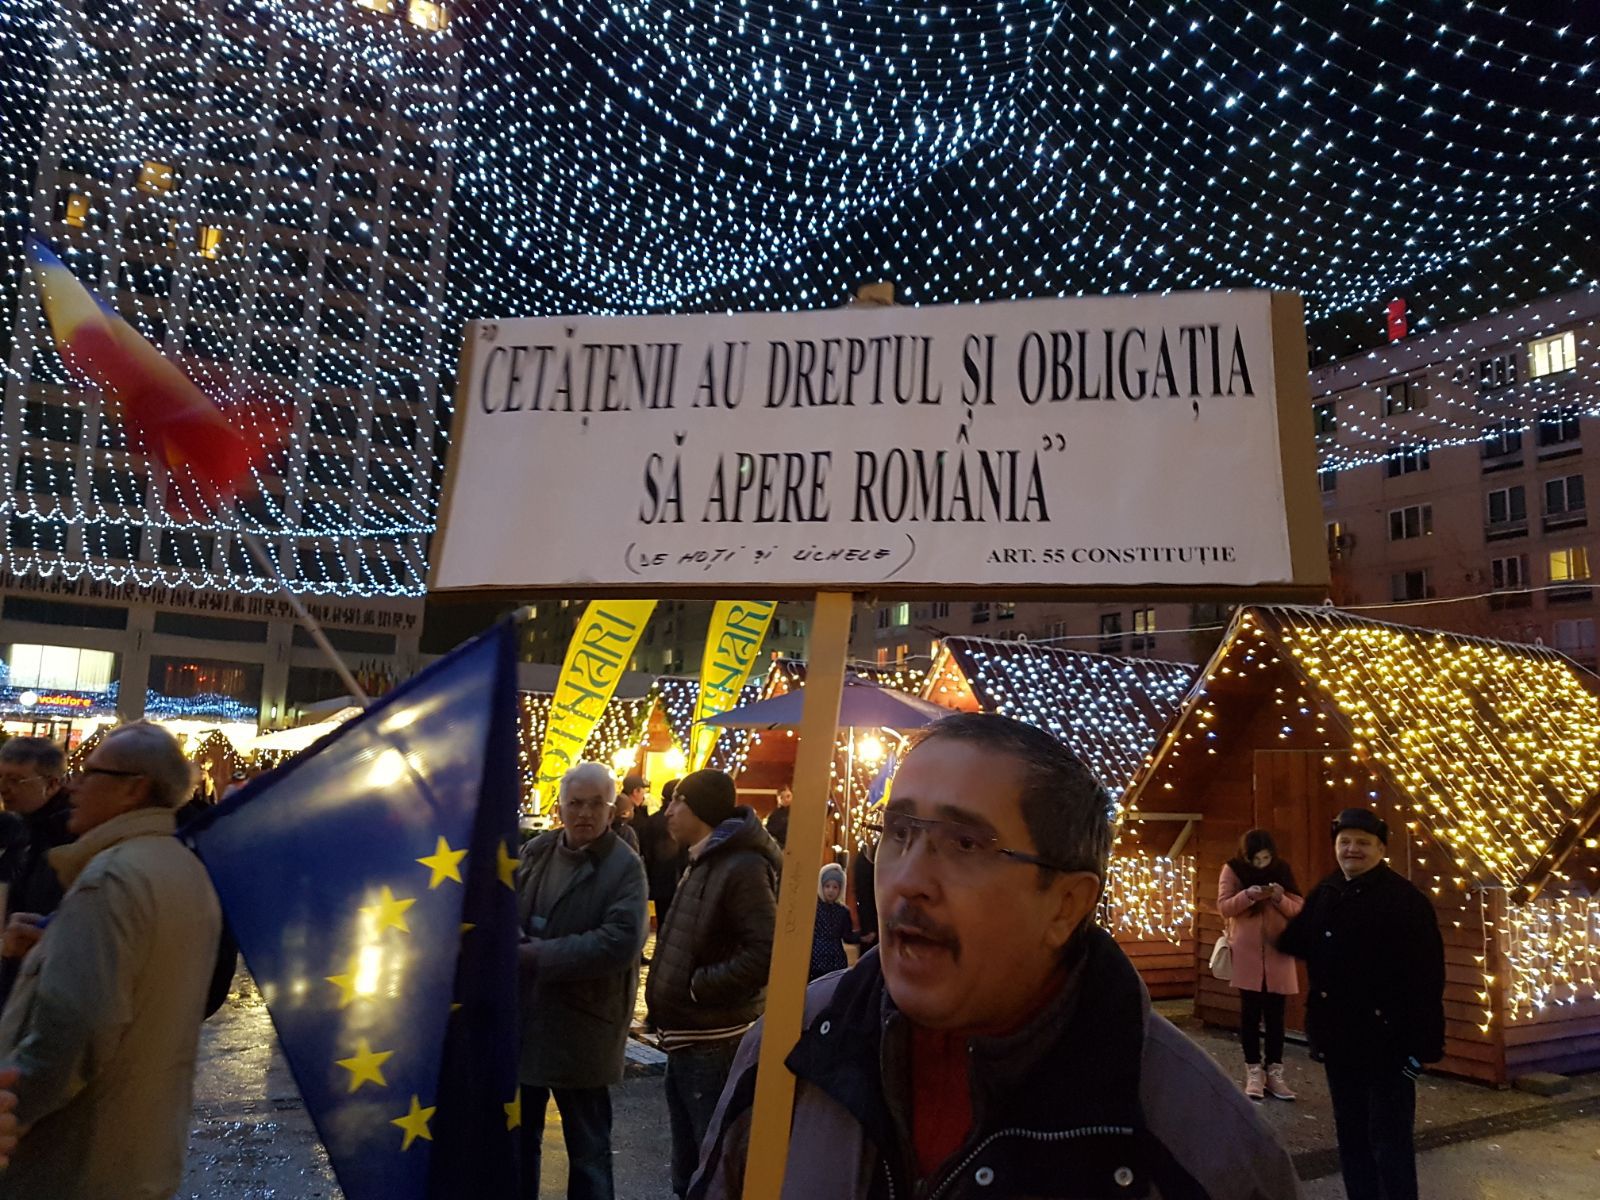 "CETĂȚENII AU DREPTUL ȘI OBLIGAȚIA
SĂ APERE ROMÂNIA"
(DE HOȚI ȘI LICHELE)
ART. 55 CONSTITUȚIE
vodafone